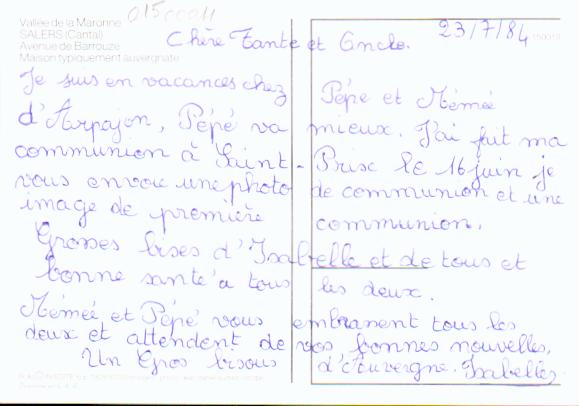 Vallée de la Maronne
SALERS (Cantal)
Avenue de Barrouze
Maison typiquement auvergnate
01500011
23/7/84
Chère Tante et Oncle.
Je suis en vacances chez Pépé et Mémée
d'Arpajon, Pépé va mieux. J'ai fait ma
communion à Saint-Prix le 16 juin je
vous envoie une photo de communion et une
image de première communion.
Grosses bises d'Isabrelle et de tous et
bonne santé a tous les deux.
Mémée et Pépé vous embrassent tous les
deux et attendent de vos bonnes nouvelles,
Un Gros bisous d'Auvergne. Isabelle.